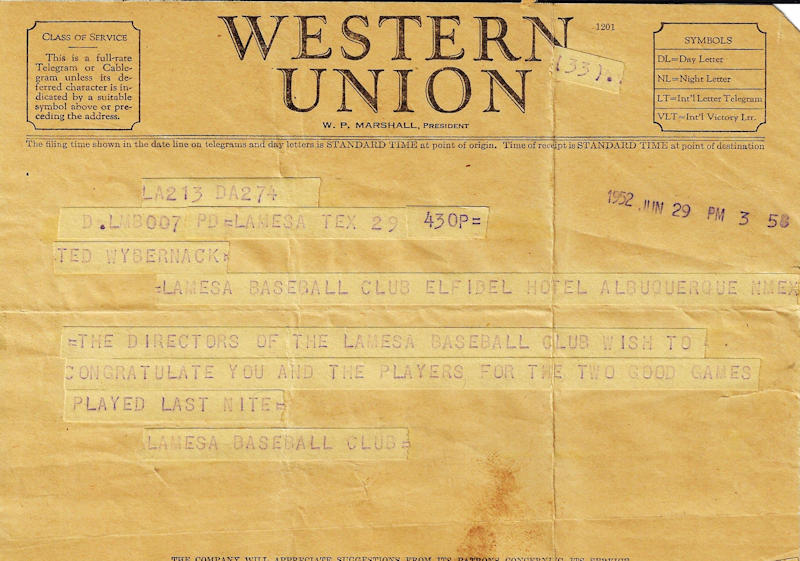 CLASS OF SERVICE
This is a full-rate
Telegram or Cable-
gram unless its de-
ferred character is in-
dicated by a suitable
symbol above or pre-
ceding the address.
WESTERN
UNION
W. P. MARSHALL, PRESIDENT
1201
(33)..
SYMBOLS
DL=Day Letter
NL=Night Letter
LT=Int'l Letter Telegram
VLT=Int'l Victory Ltr.
The filing time shown in the date line on telegrams and day letters is STANDARD TIME at point of origin. Time of receipt is STANDARD TIME at point of destination
LA213 DA274
D.LMB007 PD=LAMESA TEX 29 430P=
1952 JUN 29 PM 3 58
TED WYBERNACK=
=LAMESA BASEBALL CLUB ELFIDEL HOTEL ALBUQUERQUE NMEX
=THE DIRECTORS OF THE LAMESA BASEBALL CLUB WISH TO
CONGRATULATE YOU AND THE PLAYERS FOR THE TWO GOOD GAMES
PLAYED LAST NITE=
LAMESA BASEBALL CLUB=
THE COMPANY WILL APPRECIATE SUGGESTIONS FROM ITS PATRONS CONCERNING ITS SERVICE